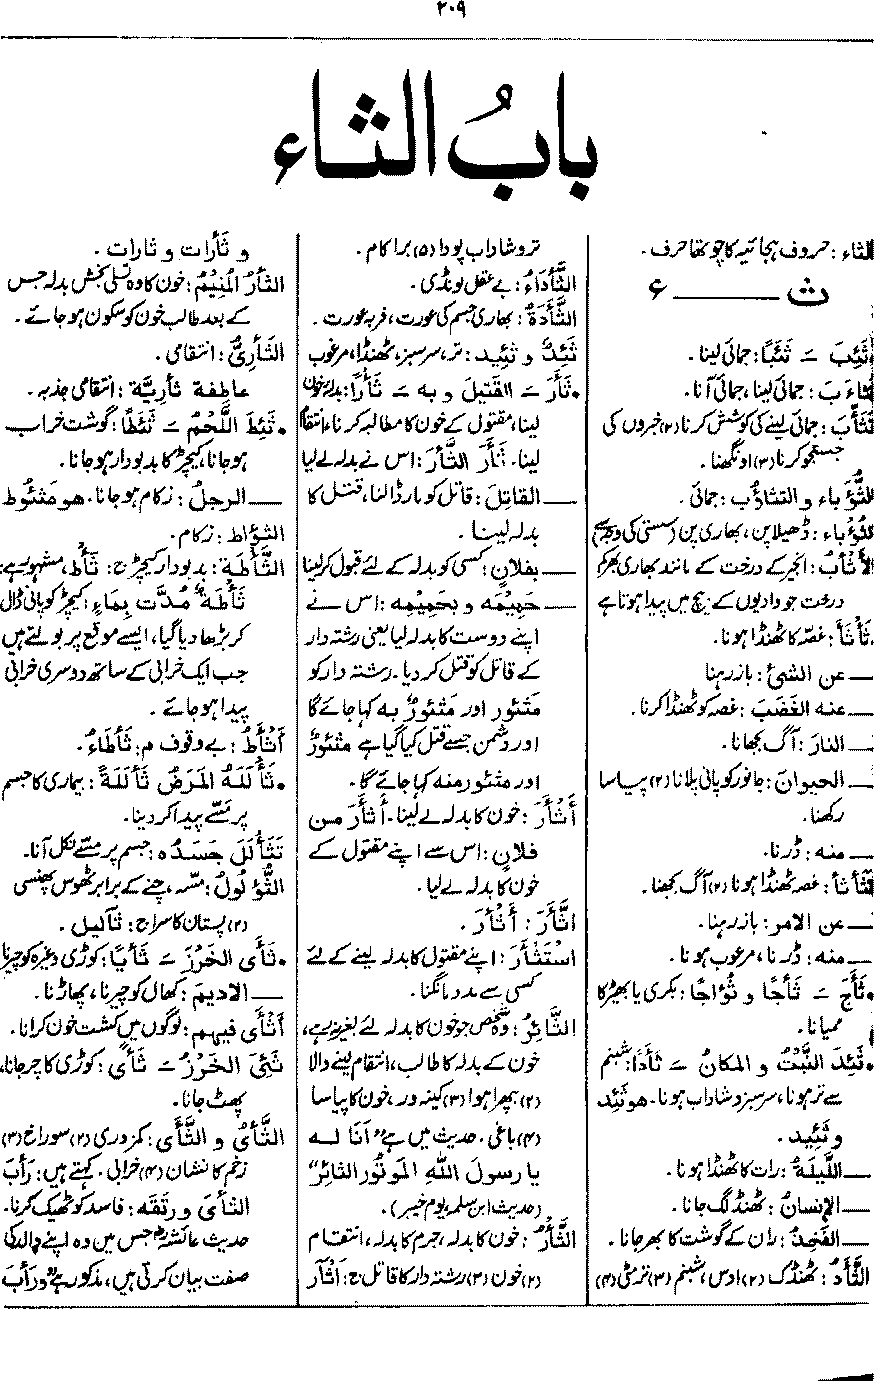 ۲۰۹
بابُ الثاء
الثاء : حروف ہجائیہ کا چوتھا حرف ۔
ث ——— ء
ثَئِبَ ــَـ ثَئَبًا : جمائی لینا ۔
ثَاءَبَ : جمائی لینا ، جمائی آنا ۔
تَثَأَّبَ : جمائی لینے کی کوشش کرنا (۲) خبروں کی
جستجو کرنا (۳) اونگھنا ۔
الثُّؤَباء و التثاؤب : جمائی ۔
الثُّؤْباء : ڈھیلا پن ، بھاری پن (سستی کی وجہ سے)
الأَثْأَبُ : انجیر کے درخت کے مانند بھاری بھرکم
درخت جو وادیوں کے بیچ میں پیدا ہوتا ہے
ثَأْثَأَ : غصّہ کا ٹھنڈا ہونا ۔
ــ عن الشئ : باز رہنا
ــ عنه الغَضَبَ : غصہ کو ٹھنڈا کرنا ۔
ــ النارَ : آگ بجھانا ۔
ــ الحيوانَ : جانور کو پانی پلانا (۲) پیاسا
رکھنا ۔
ــ منه : ڈرنا ۔
تَثَأْثَأَ : غصہ ٹھنڈا ہونا (۲) آگ بجھنا ۔
ــ عن الامر : باز رہنا ۔
ــ منه : ڈرنا ، مرعوب ہونا ۔
• ثَأَجَ ــَـ ثَأْجًا و ثُؤاجًا : بکری یا بھیڑ کا
ممیانا ۔
• ثَئِدَ النَّبْتُ و المكانُ ــَـ ثَأَدًا : شبنم
سے تر ہونا ، سرسبز و شاداب ہونا ۔ هو ثَئِد
و ثَئِيد ۔
ــ اللَّيلةُ : رات کا ٹھنڈا ہونا ۔
ــ الإنسانُ : ٹھنڈ لگ جانا ۔
ــ الفَخِذُ : ران کے گوشت کا بھر جانا ۔
الثَّأَدُ : ٹھنڈک (۲) اوس ، شبنم (۳) تری (۴)
تر و شاداب پودا (۵) برا کام ۔
الثَّأْدَاءُ : بے عقل لونڈی ۔
الثَّأْدَةُ : بھاری جسم کی عورت ، فربہ عورت ۔
ثَئِدٌ و ثَئِيد : تر ، سرسبز ، ٹھنڈا ، مرغوب
• ثَأَرَ ــَـ القَتِيلَ و به ــَـ ثَأْرًا : بدلۂ خون
لینا ، مقتول کے خون کا مطالبہ کرنا ، انتقام
لینا ۔ ثَأَرَ الثَّأْرَ : اس نے بدلہ لے لیا
ــ القاتِلَ : قاتل کو مار ڈالنا ، قتل کا
بدلہ لینا ۔
ــ بفلانٍ : کسی کو بدلہ کے لئے قبول کر لینا
ــ حَمِيْمَه و بحَمِيْمِه : اس نے
اپنے دوست کا بدلہ لیا یعنی رشتہ دار
کے قاتل کو قتل کر دیا ۔ رشتہ دار کو
مَثْئُور اور مَثْئُورٌ به کہا جائے گا
اور دشمن جسے قتل کیا گیا ہے مَثْئُورٌ
اور مثئور منہ کہا جائے گا ۔
أَثْأَرَ : خون کا بدلہ لے لینا ۔ أثأرَ من
فلانٍ : اس سے اپنے مقتول کے
خون کا بدلہ لے لیا ۔
اثَّأَرَ : أَثْأَرَ ۔
اسْتَثْأَرَ : اپنے مقتول کا بدلہ لینے کے لئے
کسی سے مدد مانگنا ۔
الثَّائِرُ : وہ شخص جو خون کا بدلہ لئے بغیر نہ رہے ،
خون کے بدلہ کا طالب ، انتقام لینے والا
(۲) بپھرا ہوا (۳) کینہ ور ، خون کا پیاسا
(۴) باغی ۔ حدیث میں ہے ”أنا لہ
يا رسولَ اللهِ المَوتُور الثائِر“
(حدیث ابن سلمہ یوم خیبر) ۔
الثَّأْرُ : خون کا بدلہ ، جرم کا بدلہ ، انتقام
(۲) خون (۳) رشتہ دار کا قاتل ج : أَثْآر
و ثَأَرات و ثارات ۔
الثَّأْرُ المُنِيْمُ : خون کا وہ تسلی بخش بدلہ جس
کے بعد طالب خون کو سکون ہو جائے ۔
الثَّأرِيُّ : انتقامی ۔
عاطفة ثأريَّة : انتقامی جذبہ ۔
• ثَئِطَ اللَّحْمُ ــَـ ثَئَطًا : گوشت خراب
ہو جانا ، کیچڑ کا بدبودار ہو جانا ۔
ــ الرجلُ : زکام ہو جانا ۔ هو مَثْئُوط
الثؤاط : زکام ۔
الثَّأْطَة : بدبودار کیچڑ ج : ثَأْط ، مشہور ہے :
ثَأْطَةٌ مُدَّت بِمَاءٍ : کیچڑ کو پانی ڈال
کر بڑھا دیا گیا ، ایسے موقع پر بولتے ہیں
جب ایک خرابی کے ساتھ دوسری خرابی
پیدا ہو جائے ۔
أَثْأَطُ : بے وقوف م : ثَأْطَاءُ ۔
• ثَأْلَلَهُ المَرَضُ ثَأْلَلَةً : بیماری کا جسم
پر مَسّے پیدا کر دینا ۔
تَثَأْلَلَ جَسَدُه : جسم پر مسّے نکل آنا ۔
الثُّؤْلُولُ : مسّہ ، چنے کے برابر ٹھوس پھنسی
(۲) پستان کا سرا ج : ثآلِيل ۔
• ثَأَى الخَرْزَ ــَـ ثَأْيًا : کوڑی وغیرہ کو چیرنا
ــ الاديمَ : کھال کو چیرنا ، پھاڑنا ۔
أَثْأَى فيهم : لوگوں میں کشت خون کرانا ۔
ثَئِيَ الخَرْزُ ــَـ ثَأًى : کوڑی کا چر جانا ،
پھٹ جانا ۔
الثَّأْيُ و الثَّأَى : کمزوری (۲) سوراخ (۳)
زخم کا نشان (۴) خرابی ۔ کہتے ہیں : رَأَبَ
الثَّأَىَ و رَتَقَه : فاسد کو ٹھیک کرنا ۔
حدیث عائشہؓ جس میں وہ اپنے والد کی
صفت بیان کرتی ہیں ، مذکور ہے و رَأَبَ